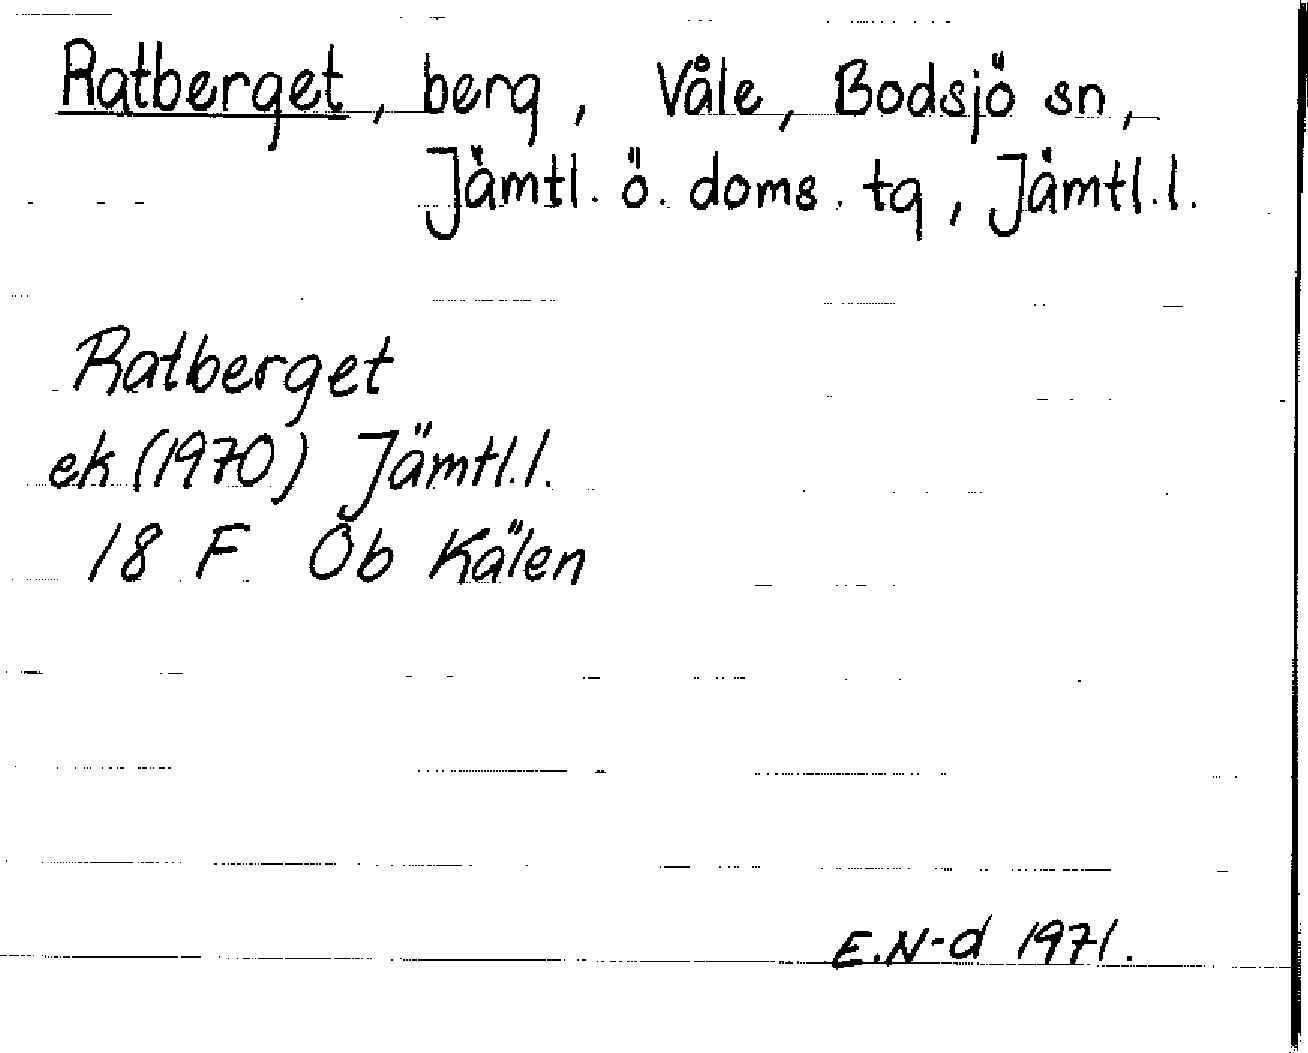 Ratberget, berg, Våle, Bodsjö sn,
Jämtl. ö. doms. tg, Jämtl.l.
Ratberget
ek (1970) Jämtl.l.
18 F Öb Kälen
E.N-d 1971.